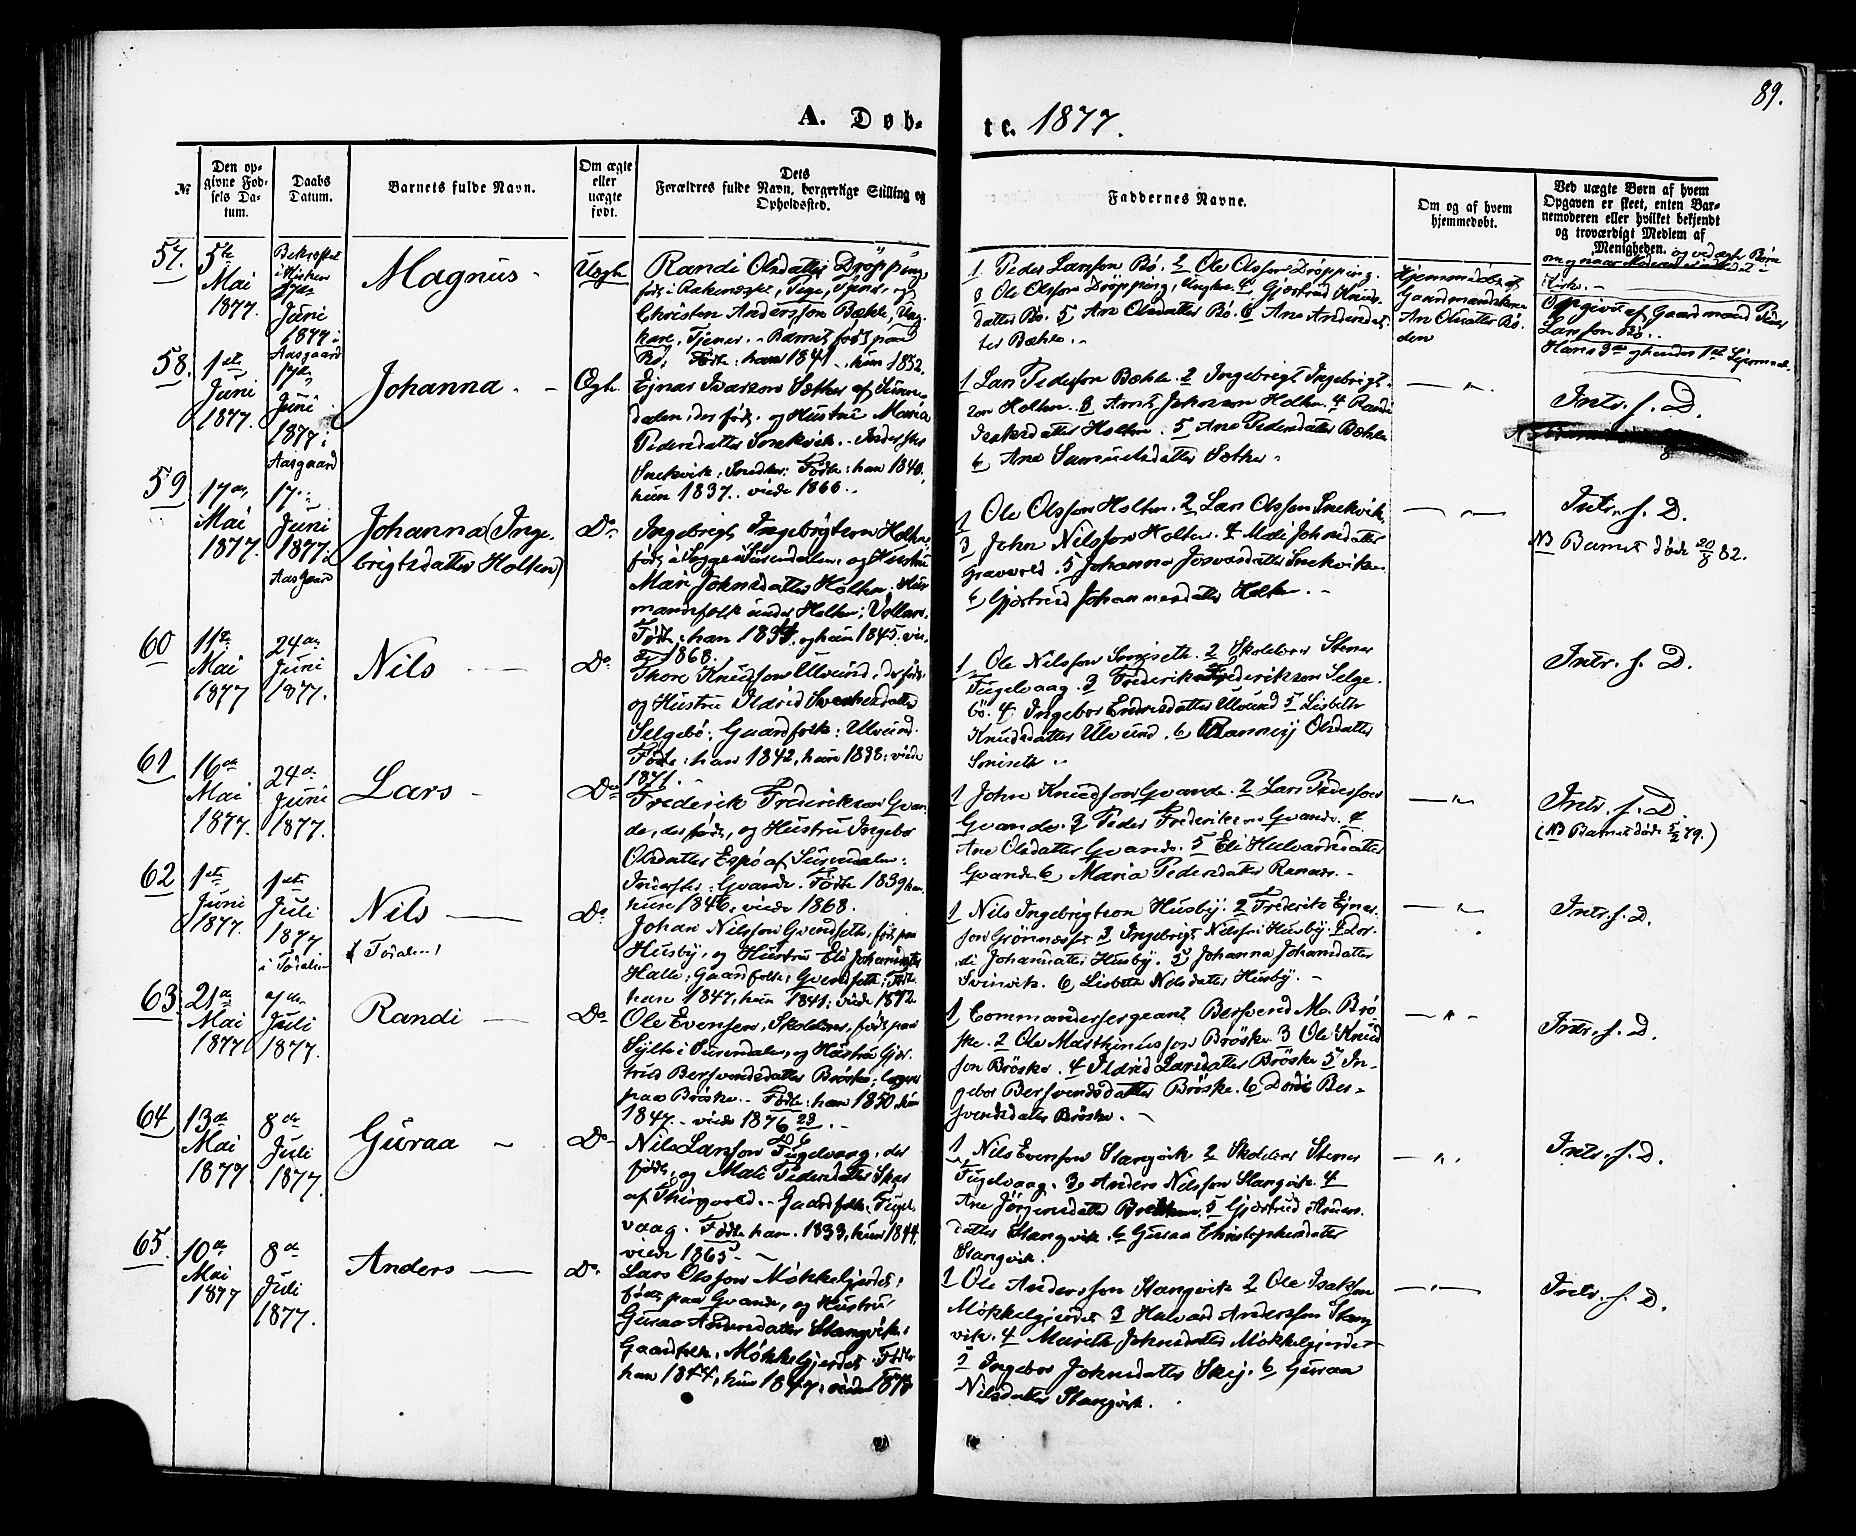 89.
A. Døb-
te. 1877.
№
Den op-
givne Fød-
sels Da-
tum.
Daabs
Datum.
Barnets fulde Navn.
Om ægte
eller
uægte
født.
Dets
Forældres fulde Navn, borgerlige Stilling og
Opholdssted.
Faddernes Navne.
Om og af hvem
hjemmedøbt.
Ved uægte Børn af hvem
Opgaven er skeet, enten Bar-
nemoderen eller hvilket bekjendt
og troværdigt Medlem af
Menigheden.
57.
5te
Mai
1877.
Juni
1877 i
Aasgaard
Magnus -
Uægte
Randi Olsdatter Drøpping,
Christen Andersson Bække,
Tjener. - Barnet født paa
Bø. Født: han 1841 -, hun 1852.
1 Peder Larsson Bø. 2 Ole Olsson Drøpping.
3 Ole Olsson Drøpping, Ungkar. 4 Gjertrud Knuds-
datter Bø. 5 Ane Olsdatter Bø. 6 Ane Andersdat-
ter Bække. -
Hjemmedøbt af
Gaardmandskone
Ane Olsdatter Bø.
Opgivet af Gaardmand Peder
Larsson Bø.
58.
1ste
Juni
1877.
17de
Juni
1877 i
Aasgaard
Johanna -
Ægte
Ejnar Ivarson Sæther af Suren-
dalen, der født, og Hustru Maria
Pedersdatter Snekvik.
Snekvik, Født: han 1840,
hun 1837. viede 1866.
1 Lars Pederson Bække. 2 Ingebrigt Ingebrigt-
son Holten. 3 Holten. 4 Randi
datter Holten. 5 Ane Pedersdatter Bække
6 Ane Samuelsdatter Sæther -
Intr. f. D.
59
17de
Mai
1877.
17de
Juni
1877 i
Aasgaard
Johanna (Inge-
brigtsdatter Holten)
Do
Ingebrigt Ingebrigtson Holten,
Surendalen, og Hustru
Mari Johnsdatter Holten, Hus-
mandsfolk under Holten;
Født: han 1834 og hun 1845. vie-
de 1868.
1 Ole Olsson Holten. 2 Lars Olsson Snekvik,
3 John Nilsson Holten. 4 Mali Johnsdatter
5 Johanna datter Snekviken
6 Gjertrud Johannesdatter Holten. -
Intr. f. D.
NB Barnet døde 20/8 82.
60
11te
Mai
1877
24de
Juni
1877.
Nils -
Do
Thore Knudsson Ulvund, der født
og Hustru Ildrid datter
Selgebø; Gaardfolk: Ulvund.
Født: han 1842, hun 1838: viede
1871. -
1 Ole Nilsson Soniseth. 2 Skolelærer Stener
Fugelvaag. 3 Frederik Frederikson Selge-
bø. 4 Ingebor Endresdatter Ulvund 5 Lisbeth
Knudsdatter Ulvund. 6 Olsdatter
Soniseth.
Intr. f. D.
61
16de
Mai
1877.
24de
Juni
1877.
Lars -
Do
Frederik Frederikson Gvan-
de, der født, og Hustru Ingebor
Olsdatter Espø af Surendalen:
Gvande. Født 1839 han
hun 1846, viede 1868.
1 John Knudson Gvande. 2 Lars Pederson
Gvande. 3 Peder Frederikson Gvande. 4
Ane Olsdatter Gvande. 5 Eli Halvardsdatter
Gvande 6 Maria Pedersdatter
Intr. f. D.
(NB Barnet døde 5/2 79.)
62
1ste
Juni
1877.
1ste
Juli
1877
i Todalen
Nils -
(Todalen)
Do
Johan Nilsson Gvendseth, født paa
Husby, og Hustru Eli Johansdatter
Halle; Gaardfolk: Gvendseth: Født
han 1847, hun 1841; viede 1872
1 Nils Ingebrigtson Husby. 2 Frederik Ejnar-
son Grønnæsset 3 Ingebrigt Nilsson Husby. 4 Dor-
di Johansdatter Husby. 5 Johanna Johansdatter
Svinvik. 6 Lisbeth Nilsdatter Husby. -
Intr. f. D.
63
21de
Mai
1877
Juli
1877.
Randi -
Do
Ole Evensen, Skolelærer, født paa
Sylte i Surendalen, og Hustru Gjer-
trud Bersvendsdatter Brøske; logere
paa Brøske.. Født: han 1850, hun
1847. - viede 1876
1 Commandersergeant Bersvend M. Brø-
ske. 2 Ole Mathinusson Brøske. 3 Ole Knud-
son Brøske. 4 Ildrid Larsdatter Brøske 5 In-
gebor Bersvendsdatter Brøske. 6 Dordi Ber-
svendsdatter Brøske. -
Intr. f. D.
64
13de
Mai
1877
8de
Juli
1877.
Guraa -
Do
Nils Larsson Fugelvaag, der
født, og Mali Pedersdatter Skei
af Thingvold. - Gaardfolk: Fugel-
vaag. Født: han 1833, hun 1844,
viede 1865. -
1 Nils Evensson Stangvik 2 Skolelærer Stener
Fugelvaag. 3 Anders Nilsson Stangvik. 4
Ane Jørgensdatter 5 Gjertrud Anders-
datter Stangvik. 6 Guraa Christophersdatter
Stangvik.
Intr. f. D.
65.
10de
Mai
1877
8de
Juli
1877.
Anders -
Do
Lars Olsson Møkkelgjerdet,
født paa Gvande, og Hustru
Guraa Andersdatter Stangvik:
Gaardfolk, Møkkelgjerdet. Født
han 1844, hun 1847; viede
1 Ole Andersson Stangvik 2 Ole Isaksen
Møkkelgjerdet 3 Halvard Andersson Stang-
vik. 4 Marith Johnsdatter Møkkelgjerdet
5 Ingebor Johnsdatter Skej. 6 Guraa
Nilsdatter Stangvik.
Intr. f. D.